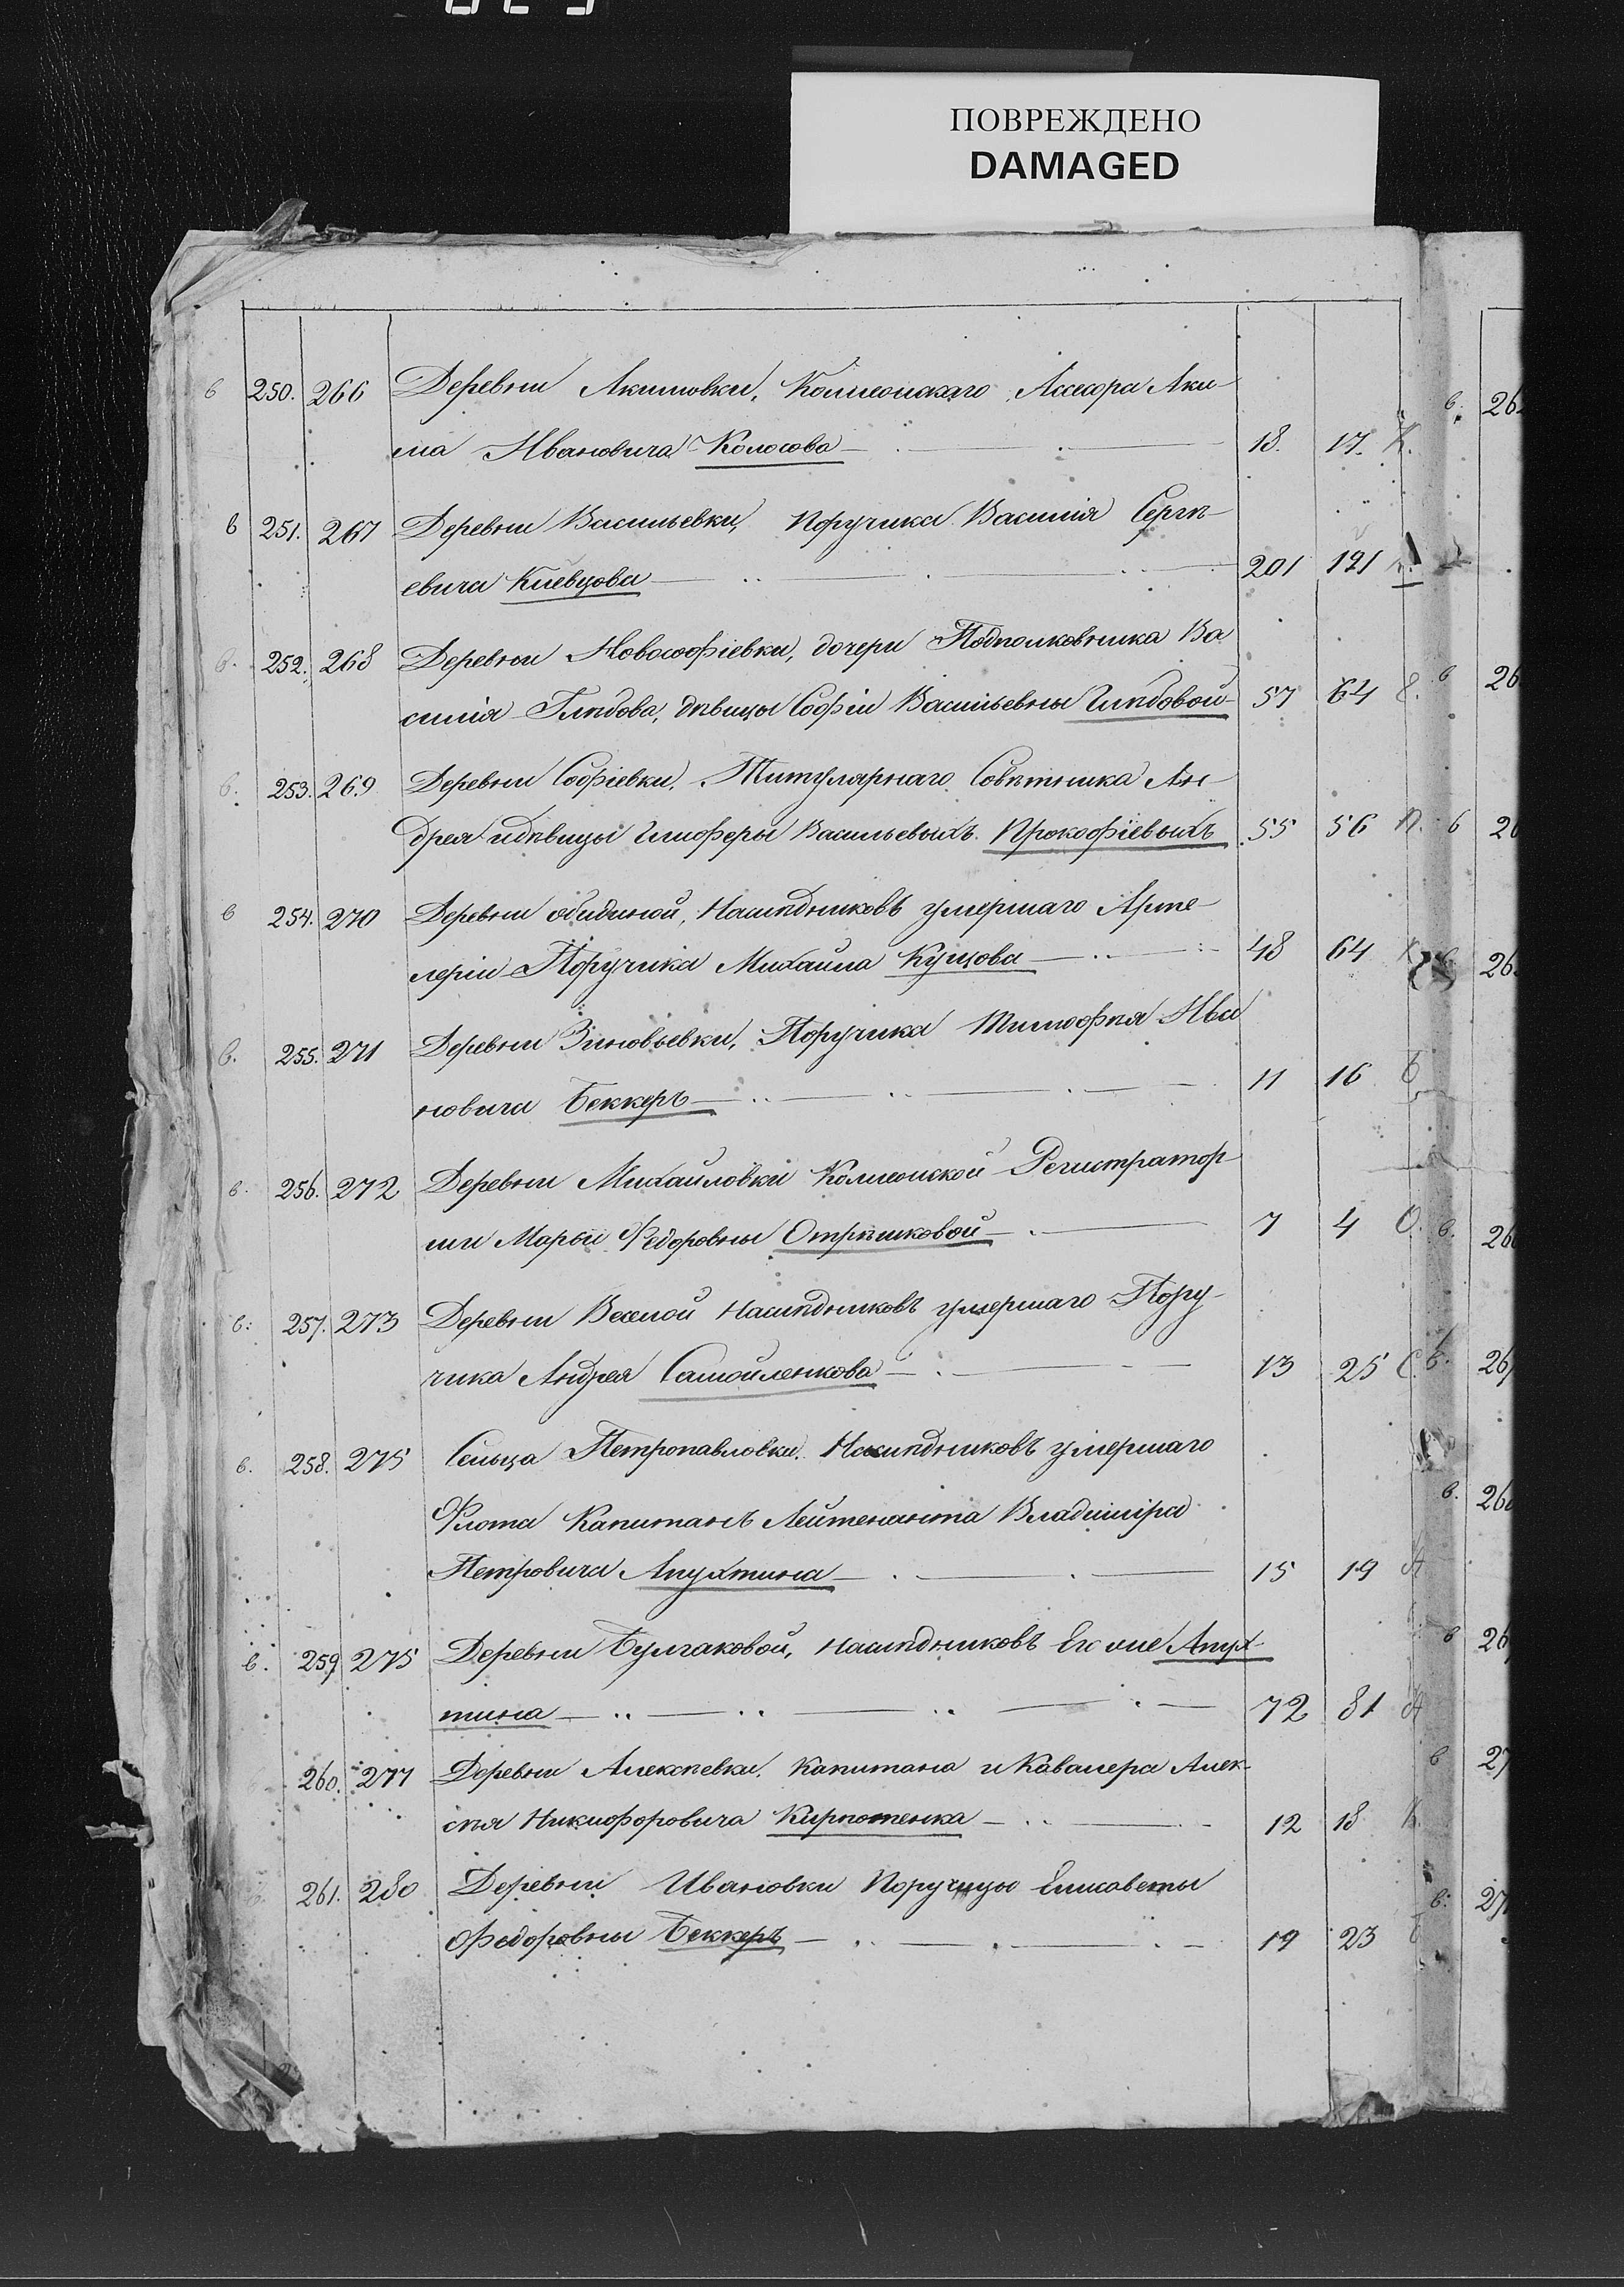 ПОВРЕЖДЕНО
DAMAGED
в 250. 266 Деревни Акимовки, Коллежскаго Ассесора Аки-
ма Ивановича Колосова 18. 17. К.
в 251. 267 Деревни Васильевки, Поручика Василія Сергѣ-
евича Кіевцова 201 121
в. 252. 268 Деревни Новософіевки, дочери Подполковника Ва
силія Глѣбова, дѣвицы Софіи Васильевны Глѣбовой 57 64
в. 253. 269 Деревни Софіевки, Титулярнаго Совѣтника Ан-
дрея и дѣвицы Глиферы Васильевыхъ Прокофіевыхъ 55 56 П.
в 254. 270 Деревни Обидиной, Наслѣдниковъ умершаго Арте-
леріи Поручика Михаила Купцова 48 64 К
в. 255. 271 Деревни Зиновьевки, Поручика Тимофѣя Ива
новича Беккеръ 11 16 Б
в. 256. 272 Деревни Михайловки Коллежской Регистратор-
ши Марьи Федоровны Отрѣшковой 7 4 О.
в: 257. 273 Деревни Веселой Наслѣдниковъ умершаго Пору-
чика Андрея Самойленкова 13 25 С.
в. 258. 275 Сельца Петропавловки. Наслѣдниковъ умершаго
Флота Капитанъ Лейтенанта Владиміра
Петровича Апухтина 15 19 А
в. 259 275 Деревни Булгаковой, наслѣдниковъ Его же Апух-
тина 72 81 А
260. 277 Деревни Алексѣевки, Капитана и Кавалера Алек-
сѣя Никифоровича Кирпотенка 12 18 К
261. 280 Деревни Ивановки Поручицы Елисаветы
Федоровны Беккеръ 19 23 Б